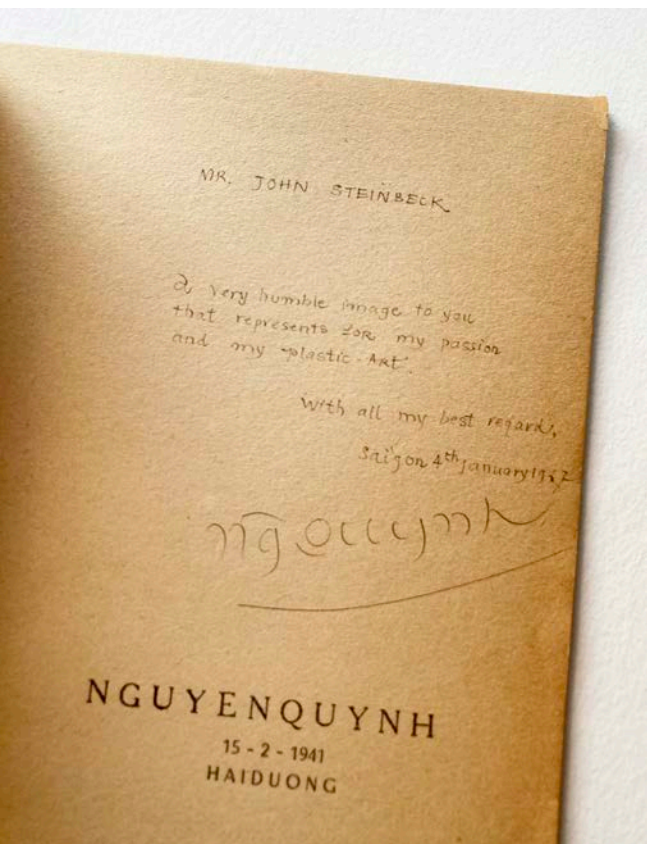 MR. JOHN STEINBECK
A very humble image to you
that represents for my passion
and my plastic Art.
With all my best regard,
Saigon 4th January
NGUYENQUYNH
15 - 2 - 1941
HAIDUONG